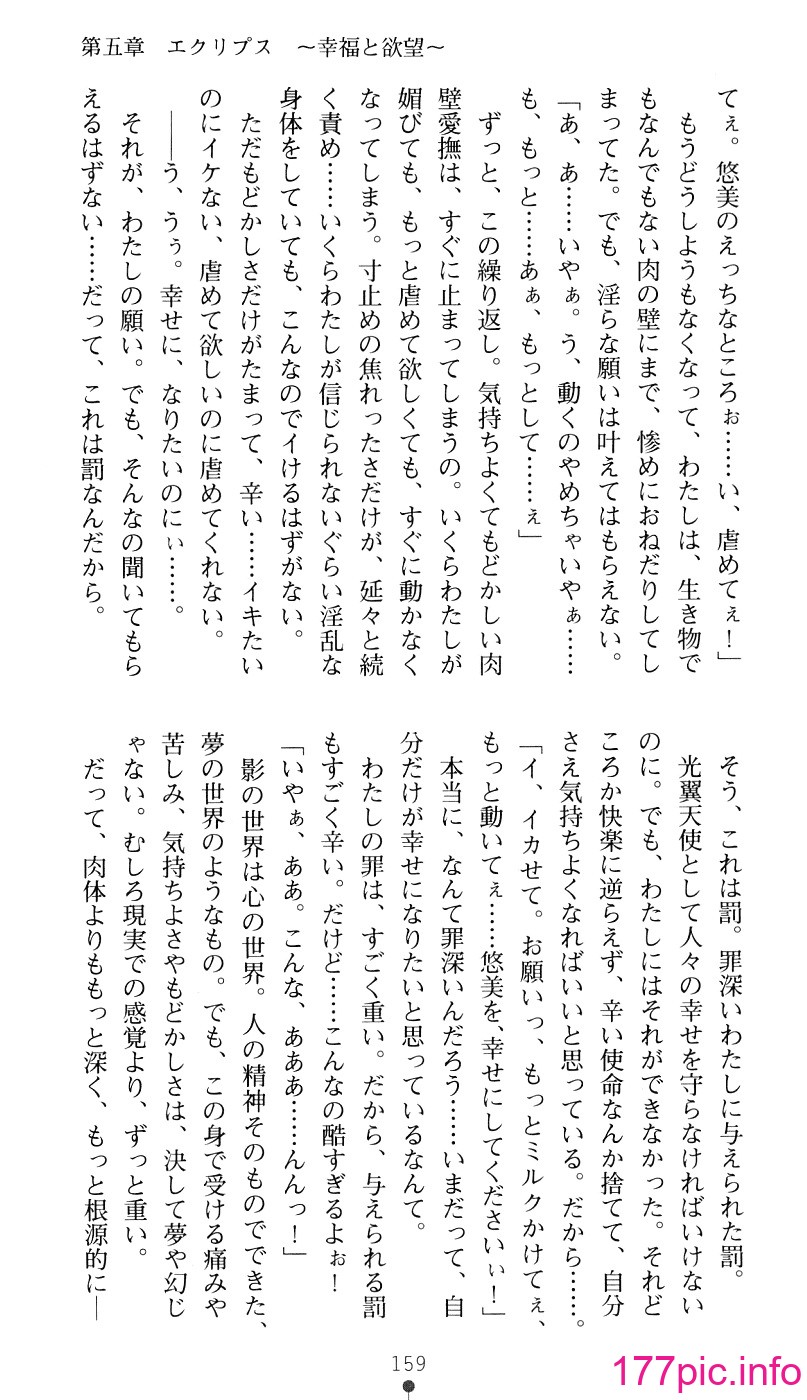 第五章　エクリプス　～幸福と欲望～
てぇ。悠美のえっちなところぉ……い、虐めてぇ！」
もうどうしようもなくなって、わたしは、生き物で
もなんでもない肉の壁にまで、惨めにおねだりしてし
まってた。でも、淫らな願いは叶えてはもらえない。
「あ、あ……いやぁ。う、動くのやめちゃいやぁ……
も、もっと……あぁ、もっとして……ぇ」
ずっと、この繰り返し。気持ちよくてもどかしい肉
壁愛撫は、すぐに止まってしまうの。いくらわたしが
媚びても、もっと虐めて欲しくても、すぐに動かなく
なってしまう。寸止めの焦れったさだけが、延々と続
く責め……いくらわたしが信じられないぐらい淫乱な
身体をしていても、こんなのでイけるはずがない。
ただもどかしさだけがたまって、辛い……イキたい
のにイケない、虐めて欲しいのに虐めてくれない。
――う、うぅ。幸せに、なりたいのにぃ……。
それが、わたしの願い。でも、そんなの聞いてもら
えるはずない……だって、これは罰なんだから。
そう、これは罰。罪深いわたしに与えられた罰。
光翼天使として人々の幸せを守らなければいけない
のに。でも、わたしにはそれができなかった。それど
ころか快楽に逆らえず、辛い使命なんか捨てて、自分
さえ気持ちよくなればいいと思っている。だから……。
「イ、イカせて。お願いっ、もっとミルクかけてぇ、
もっと動いてぇ……悠美を、幸せにしてくださいぃ！」
本当に、なんて罪深いんだろう……いまだって、自
分だけが幸せになりたいと思っているなんて。
わたしの罪は、すごく重い。だから、与えられる罰
もすごく辛い。だけど……こんなの酷すぎるよぉ！
「いやぁ、ああ。こんな、あああ……んんっ！」
影の世界は心の世界。人の精神そのものでできた、
夢の世界のようなもの。でも、この身で受ける痛みや
苦しみ、気持ちよさやもどかしさは、決して夢や幻じ
ゃない。むしろ現実での感覚より、ずっと重い。
だって、肉体よりももっと深く、もっと根源的に―
159
177pic.info